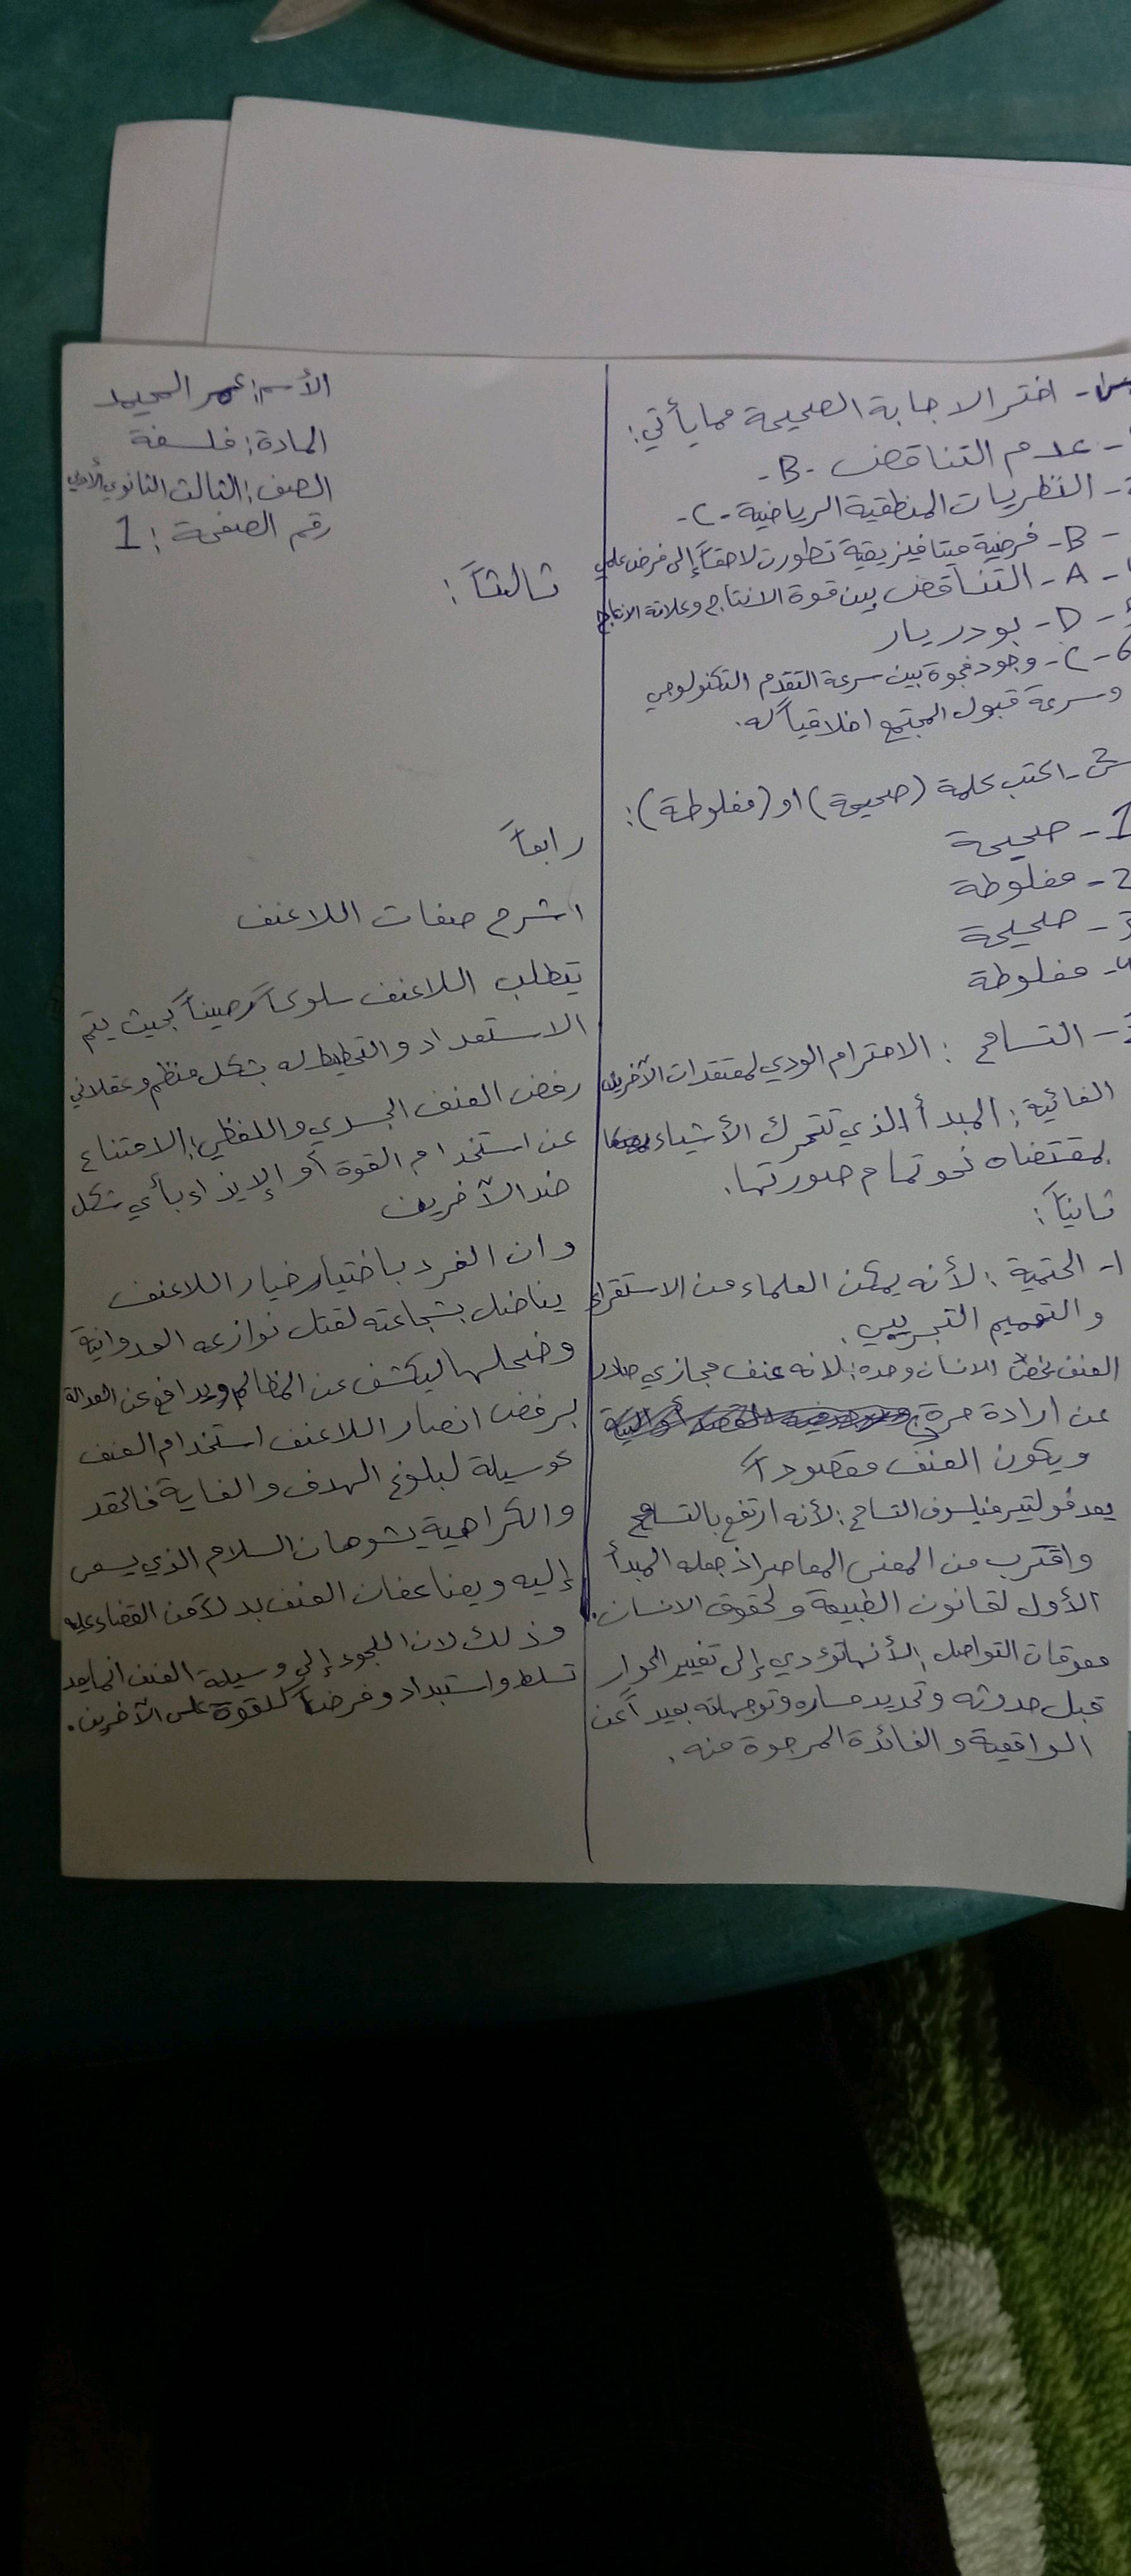 س1- اختر الاجابة الصحيحة مما يأتي:
- عدم التناقض - B-
- النظريات المنطقية الرياضية - C-
- B- فرضية ميتافيزيقية تطورت لاحقاً إلى فرض علمي
- A- التناقض بين قوة الانتاج وعلاقة الانتاج
- D- بودريار
6- C- وجود فجوة بين سرعة التقدم التكنولوجي
وسرعة قبول المجتمع اخلاقياً له.
- اكتب كلمة (صحيحة) او (مغلوطة):
1- صحيحة
2- مغلوطة
3- صحيحة
4- مغلوطة
- التسامح: الاحترام الودي لمعتقدات الآخرين
الغائية: المبدأ الذي تتحرك الأشياء
بمقتضاه نحو تمام صورتها.
ثانياً:
1- الحتمية: لأنه يمكن العلماء من الاستقراء
والتعميم التجريبي.
العنف يخص الانسان وحده: لانه عنف مجازي صادر
عن ارادة حرة
ويكون العنف مقصوداً
يعد فولتير فيلسوف التسامح: لأنه ارتفع بالتسامح
واقترب من المعنى المعاصر اذ جعله المبدأ
الأول لقانون الطبيعة ولحقوق الانسان.
معوقات التواصل: لأنها تؤدي إلى تغيير الحوار
قبل حدوثه وتحديد مساره وتوجهاته بعيداً عن
الواقعية والفائدة المرجوة منه.
الأسم: عمر الحميد
المادة: فلسفة
الصف: الثالث الثانوي الأدبي
رقم الصفحة: 1
ثالثاً:
رابعاً
اشرح صفات اللاعنف
يتطلب اللاعنف سلوكاً رصيناً بحيث يتم
الاستعداد والتخطيط له بشكل منظم وعقلاني
رفض العنف الجسدي واللفظي: الامتناع
عن استخدام القوة أو الإيذاء بأي شكل
ضد الآخرين
وان الفرد باختيار خيار اللاعنف
يناضل بشجاعته لقتل نوازعه العدوانية
ليكشف عن المظالم ويدافع عن العدالة
يرفض انصار اللاعنف استخدام العنف
كوسيلة لبلوغ الهدف والغاية فالحقد
والكراهية يشوهان السلام الذي يسعى
إليه ويضاعفان العنف بدلاً من القضاء عليه
وذلك لان اللجوء إلى وسيلة العنف انما يعد
تسلط واستبداد وفرضاً للقوة على الآخرين.